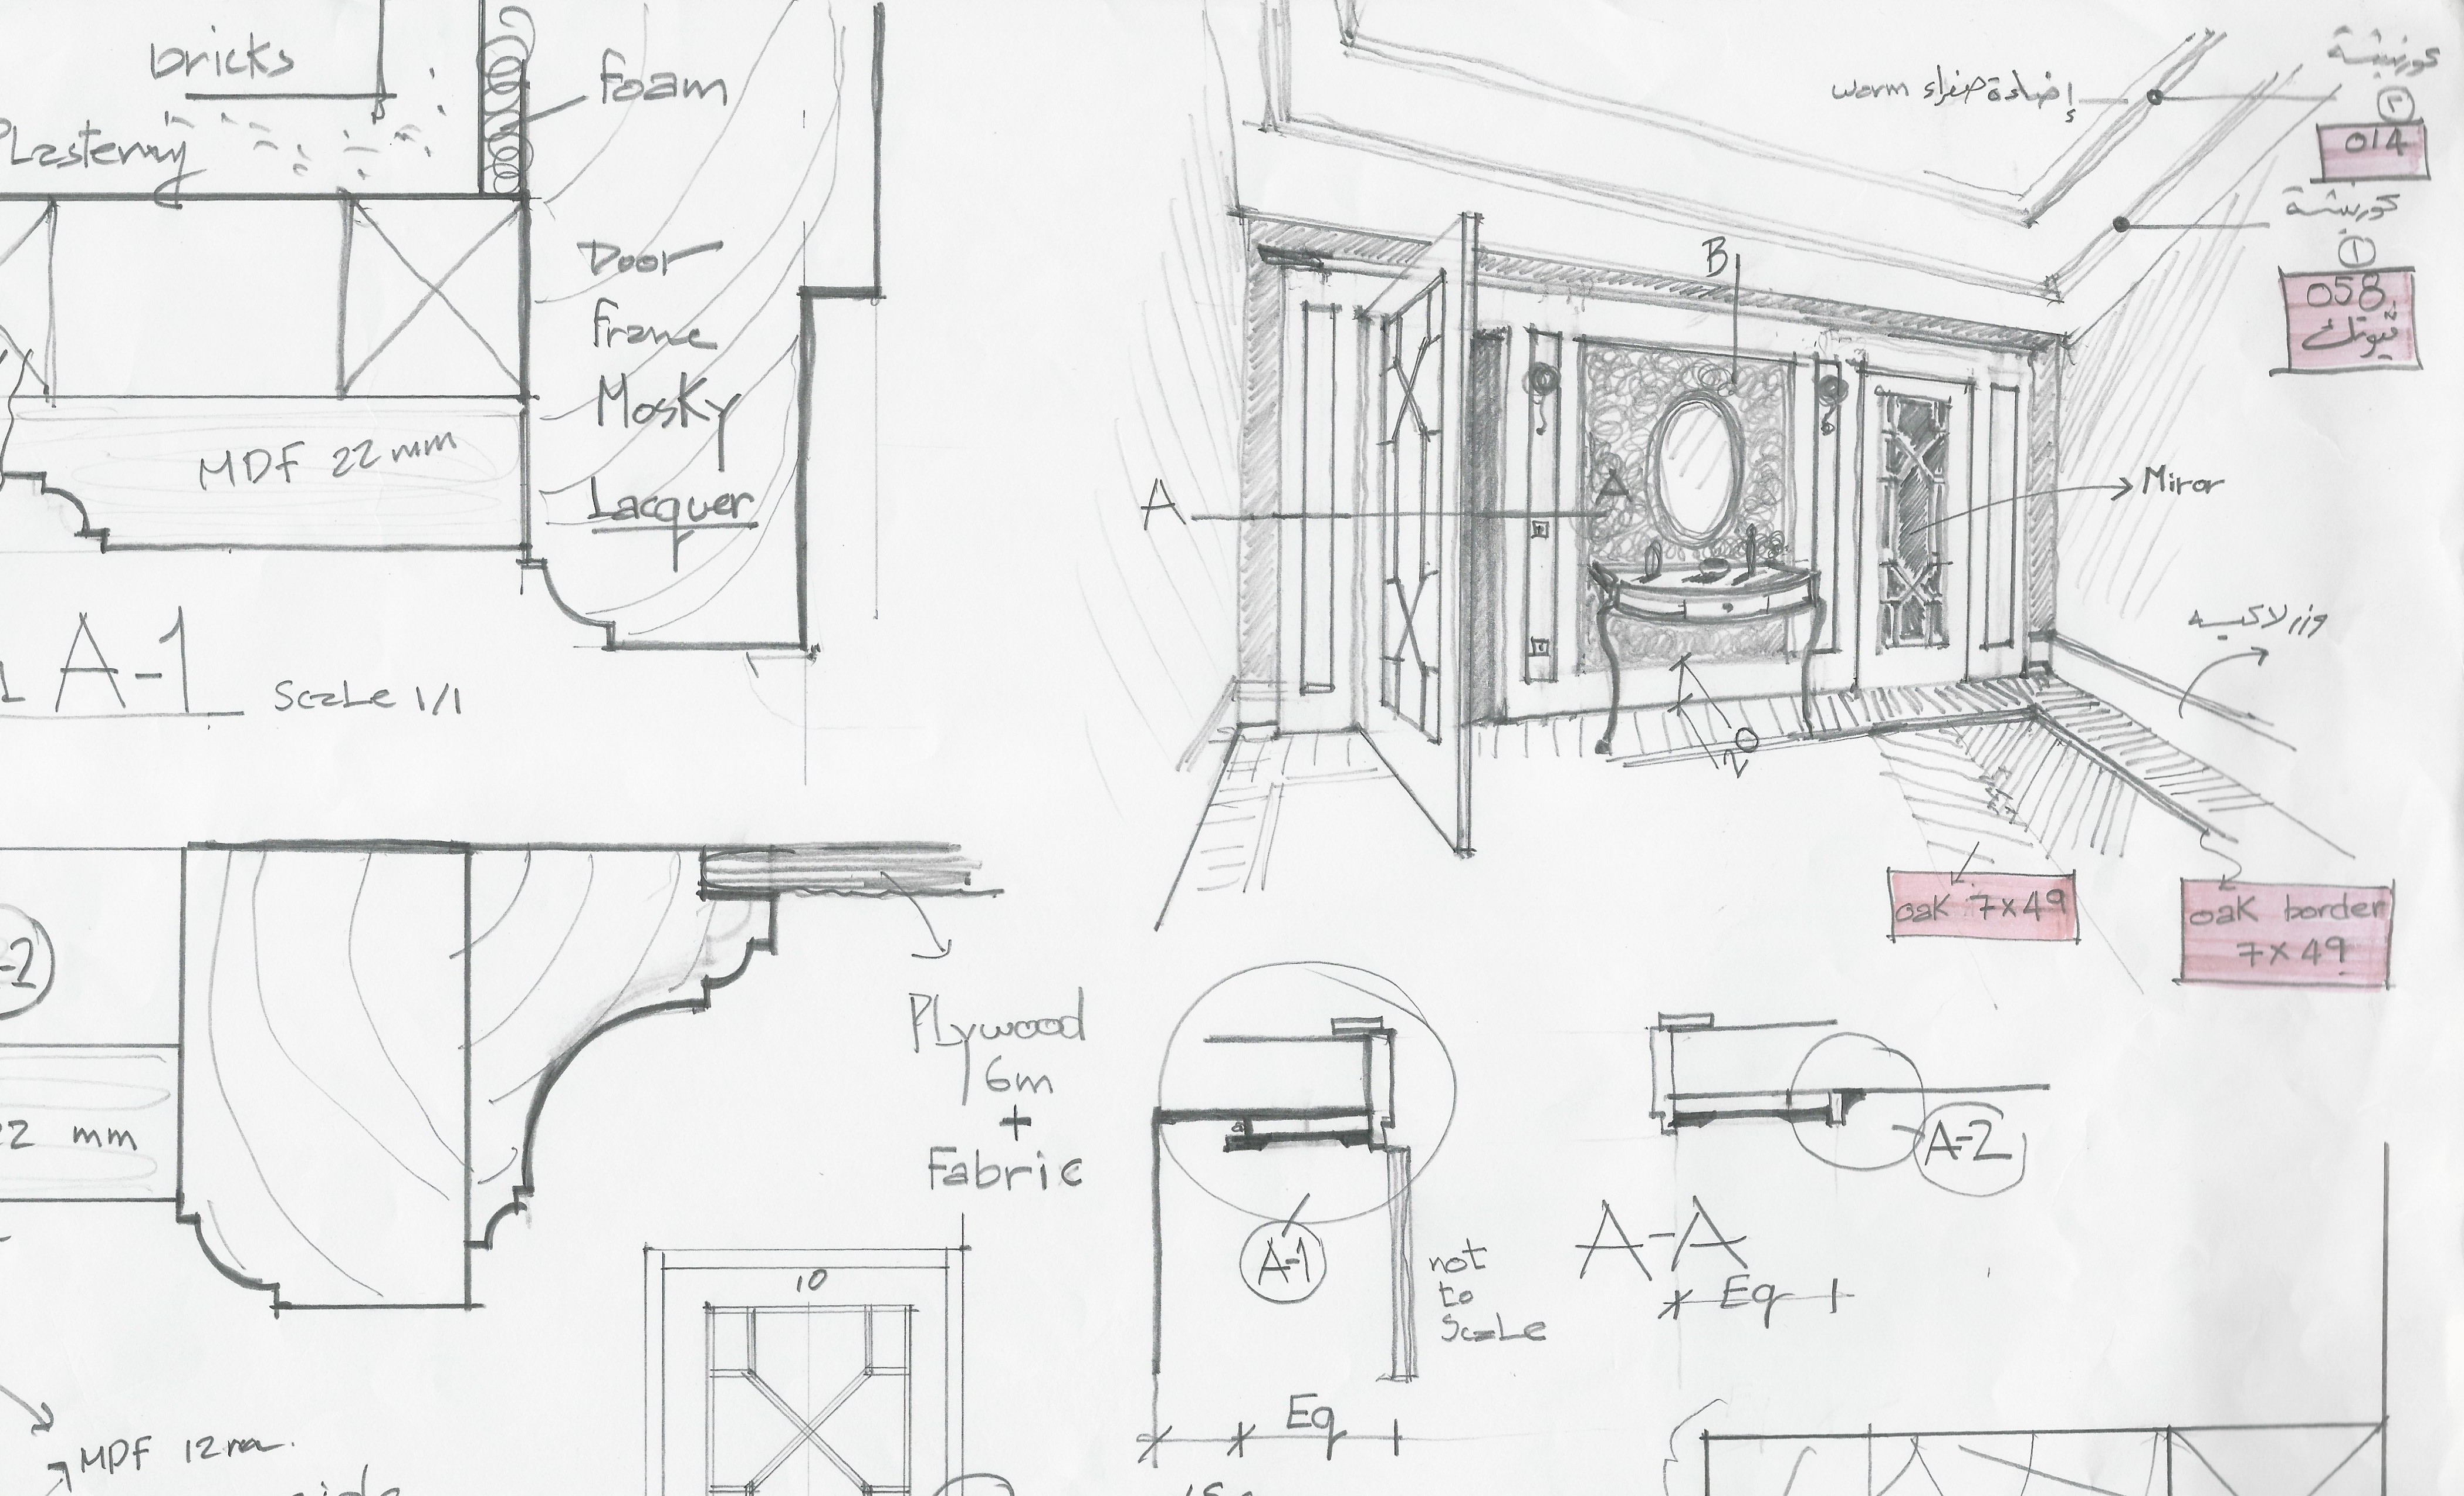 bricks
Foam
Plastering
Door
Frame
Mosky
Lacquer
MDF 22 mm
A-1
Scale 1/1
warm إضاءة صفراء
كورنيشة
٢
014
كورنيشة
١
058
B
A
A
Miror
وزر لاكيه
oak 7x49
oak border
7x49
-2
22 mm
Plywood
6m
+
Fabric
A-1
not
to
Scale
A-2
A-A
Eq
Eq
10
MDF 12
side